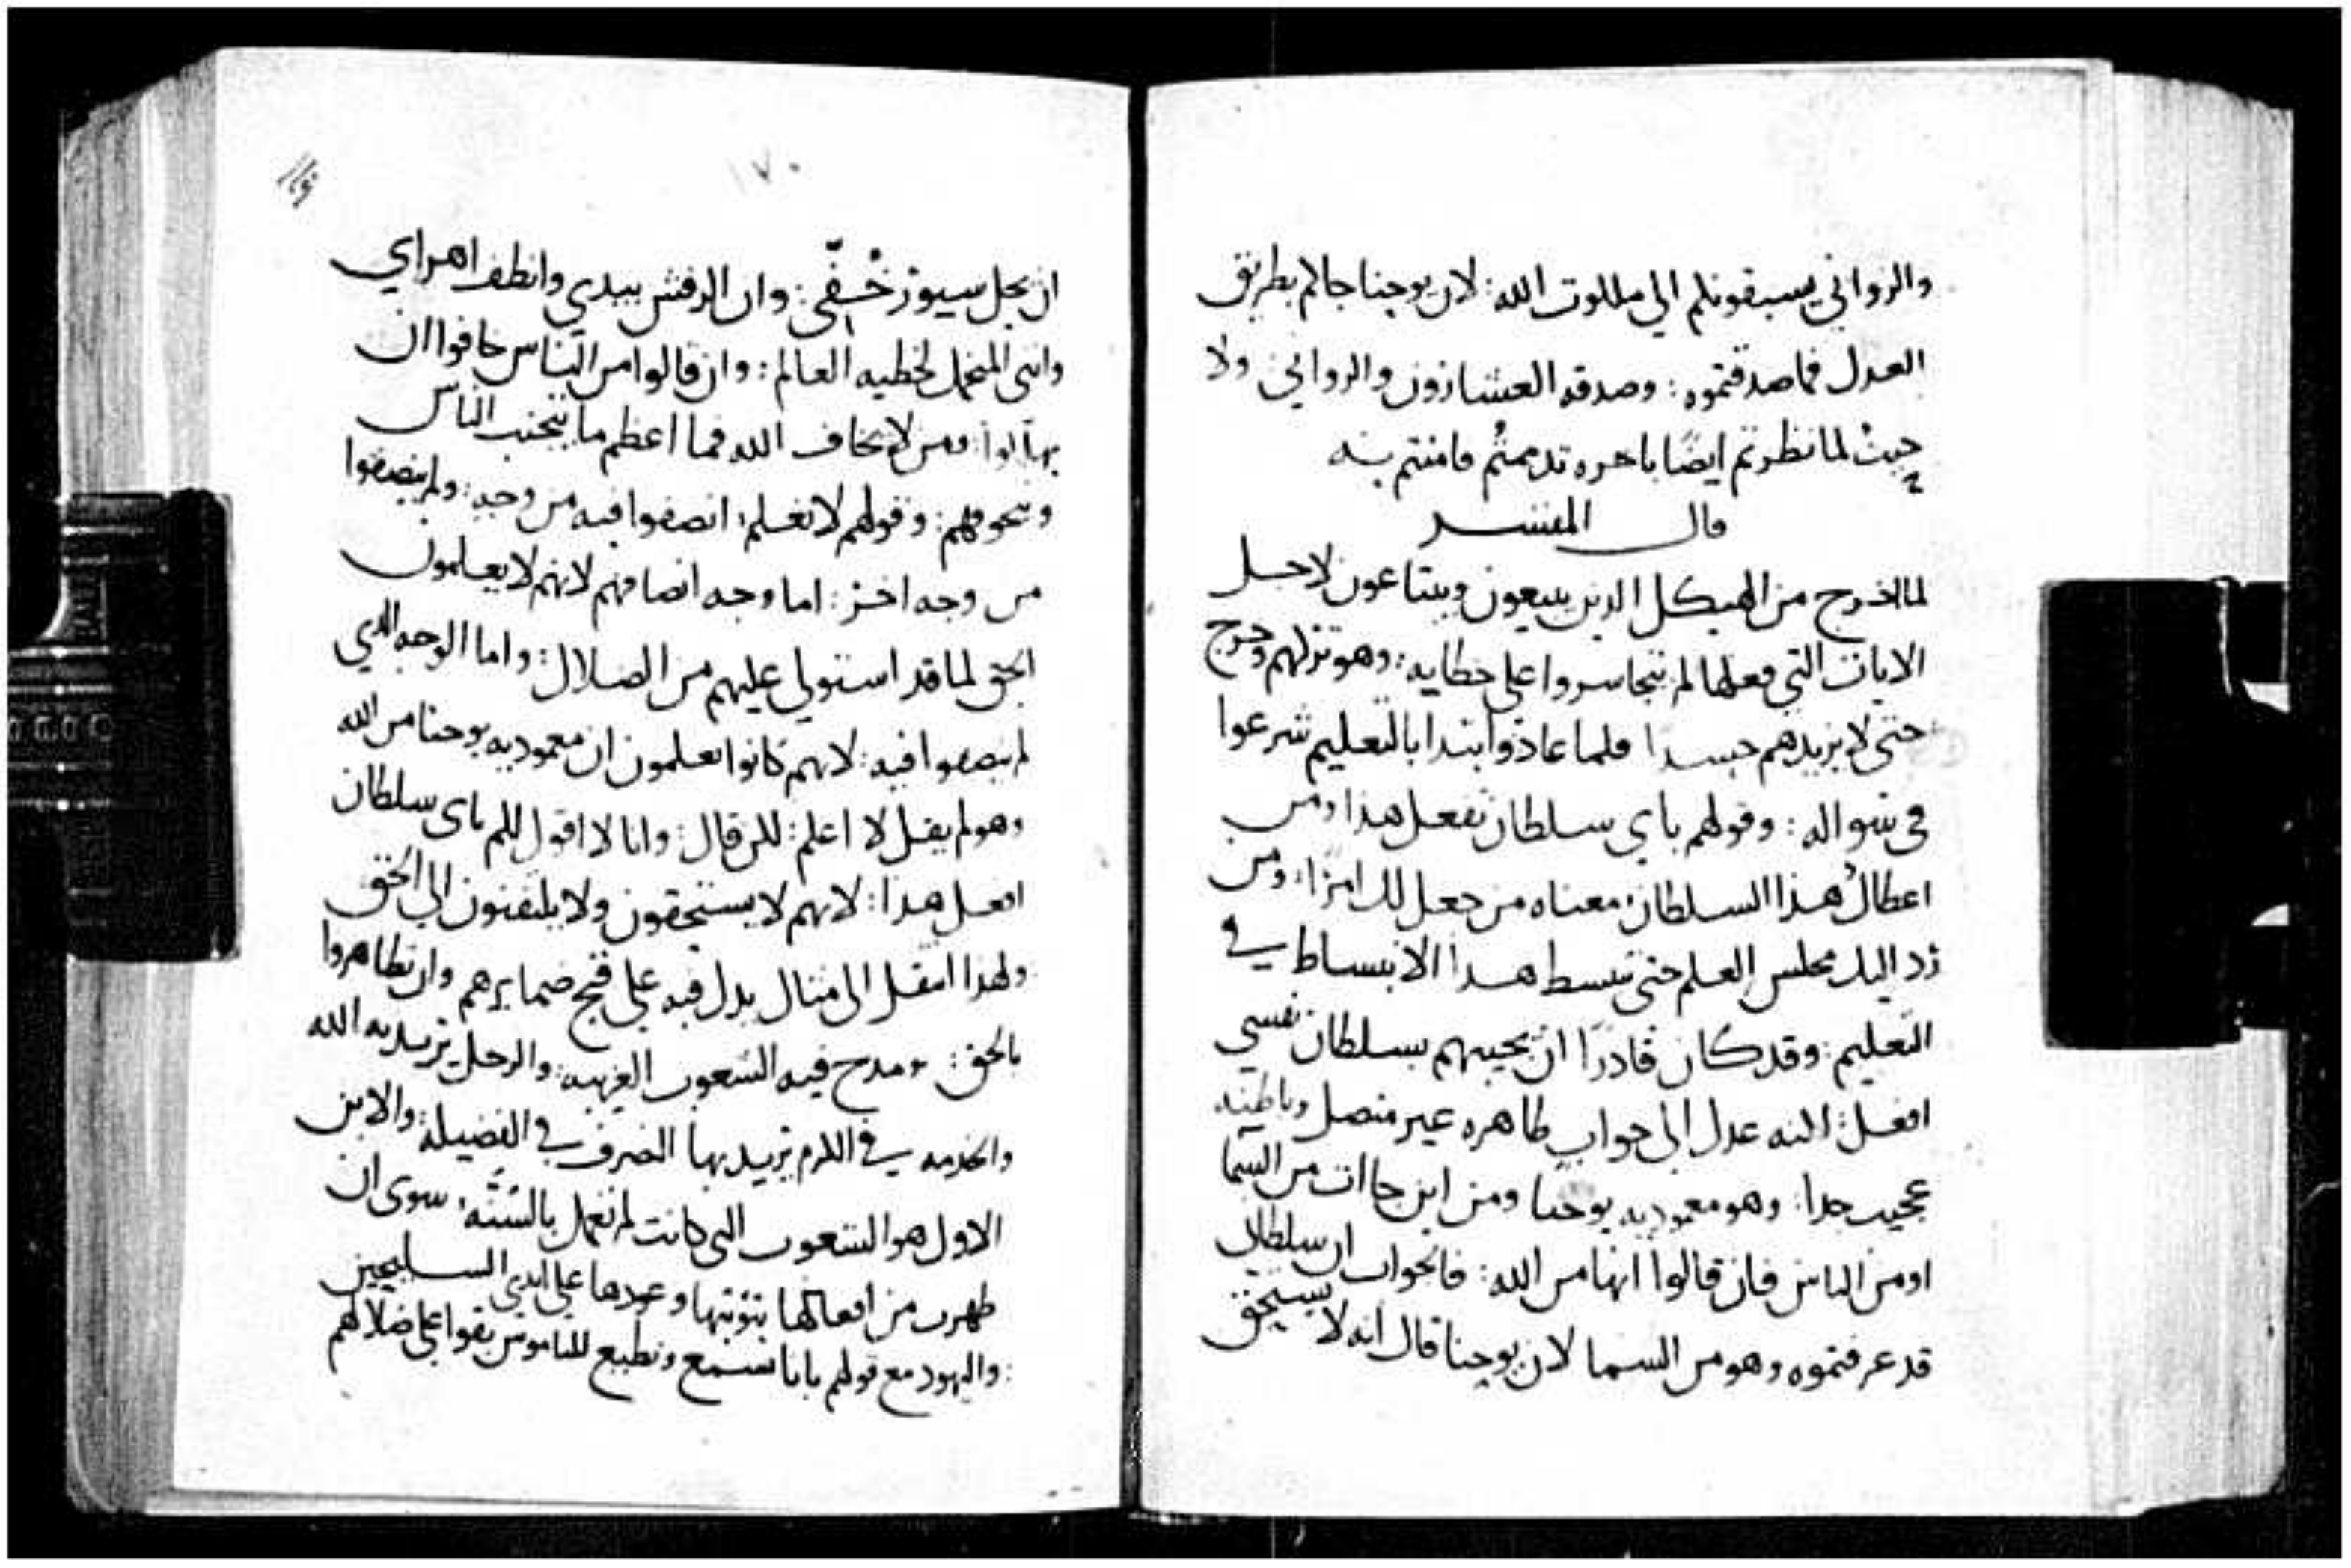 والزواني يسبقونكم الي ملكوت الله: لان يوحنا جاكم بطريق
العدل فما صدقتموه: وصدقه العشارون والزواني ولا
حيث لما نظرتم ايضًا باخره ندمتم فامنتم به
قال المفسر
لما اخرج من الهيكل الذين يبيعون ويبتاعون لاجل
الايات التي فعلها لم يتجاسروا على خطابه: وهو تركهم وخرج
حتى لا يزيدهم حسدا فلما عاد وابتدا بالتعليم شرعوا
في سواله: وقولهم باي سلطان تفعل هذا ومن
اعطاك هذا السلطان: معناه من جعل لك امرًا: ومن
رد اليك مجلس العلم حتى تبسط هذا الانبساط في
التعليم: وقد كان قادرًا ان يجيبهم بسلطان نفسي
افعل: لكنه عدل الى جواب ظاهره غير متصل وباطنه
عجيب جدا: وهو معموديه يوحنا ومن اين جاات من السما
او من الناس فان قالوا انها من الله: فالجواب ان سلطاني
قد عرفتموه وهو من السما لان يوحنا قال انه لا يستحق
١٧٠
ان يحل سيور خفّي: وان الرفش بيدي وانظف اهراي
وانني المتحمل لخطيه العالم: وان قالوا من الناس خافوا ان
ومن لا يخاف الله فما اعظم ما يتجنب الناس
وقولهم لا نعلم: انصفوا فيه من وجه: ولم ينصفوا
من وجه اخر: اما وجه انصافهم لانهم لا يعلمون
الحق لما قد استولي عليهم من الضلال: واما الوجه الذي
لم ينصفوا فيه: لانهم كانوا يعلمون ان معموديه يوحنا من الله
وهو لم يقل لا اعلم: لكن قال: وانا لا اقول لكم باى سلطان
افعل هذا: لانهم لا يستحقون ولا يلتفتون الي الحق
ولهذا انتقل الى مثال يدل فيه علي قبح ضمايرهم وان تظاهروا
بالحق: ومدح فيه الشعوب الغريبه: والرجل يريد به الله
والخدمه في الكرم يريد بها التصرف في الفضيلة: والابن
الاول هو الشعوب التي كانت لم تعمل بالسُنَّه: سوى ان
ظهرت من افعالها بتوبتها وعمدها علي ايدي السليحيين
: واليهود مع قولهم بانا نسمع ونطيع للناموس بقوا على ضلالهم